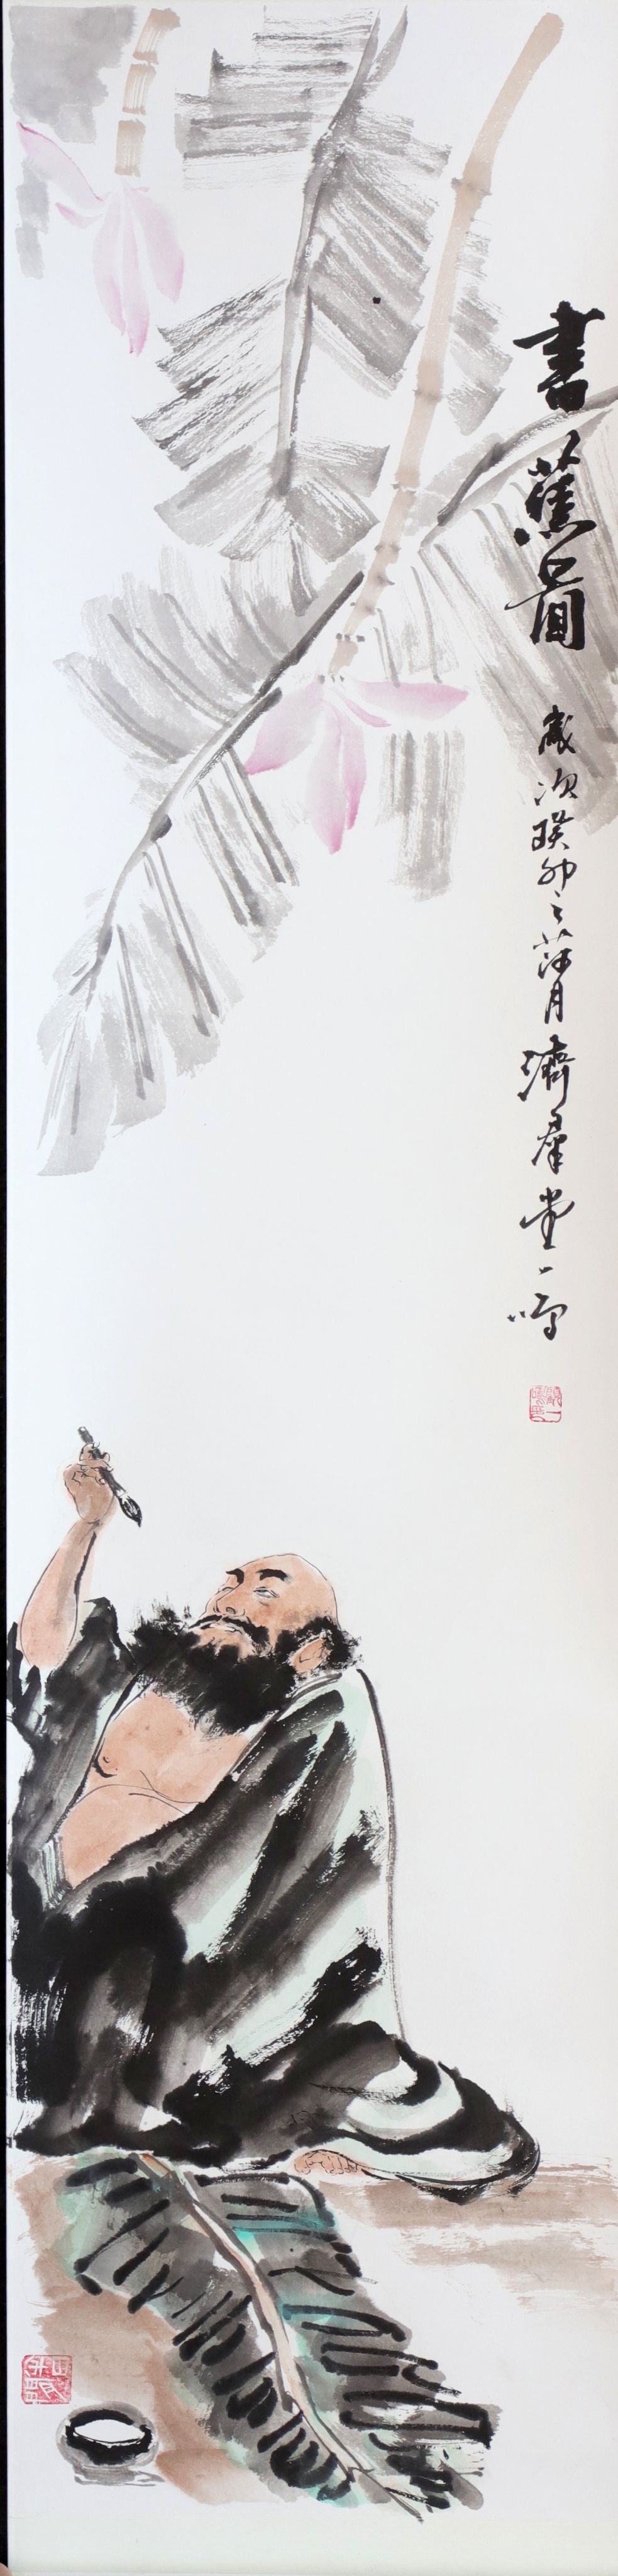 書蕉圖
歲次癸卯之蒲月濟群堂一鳴